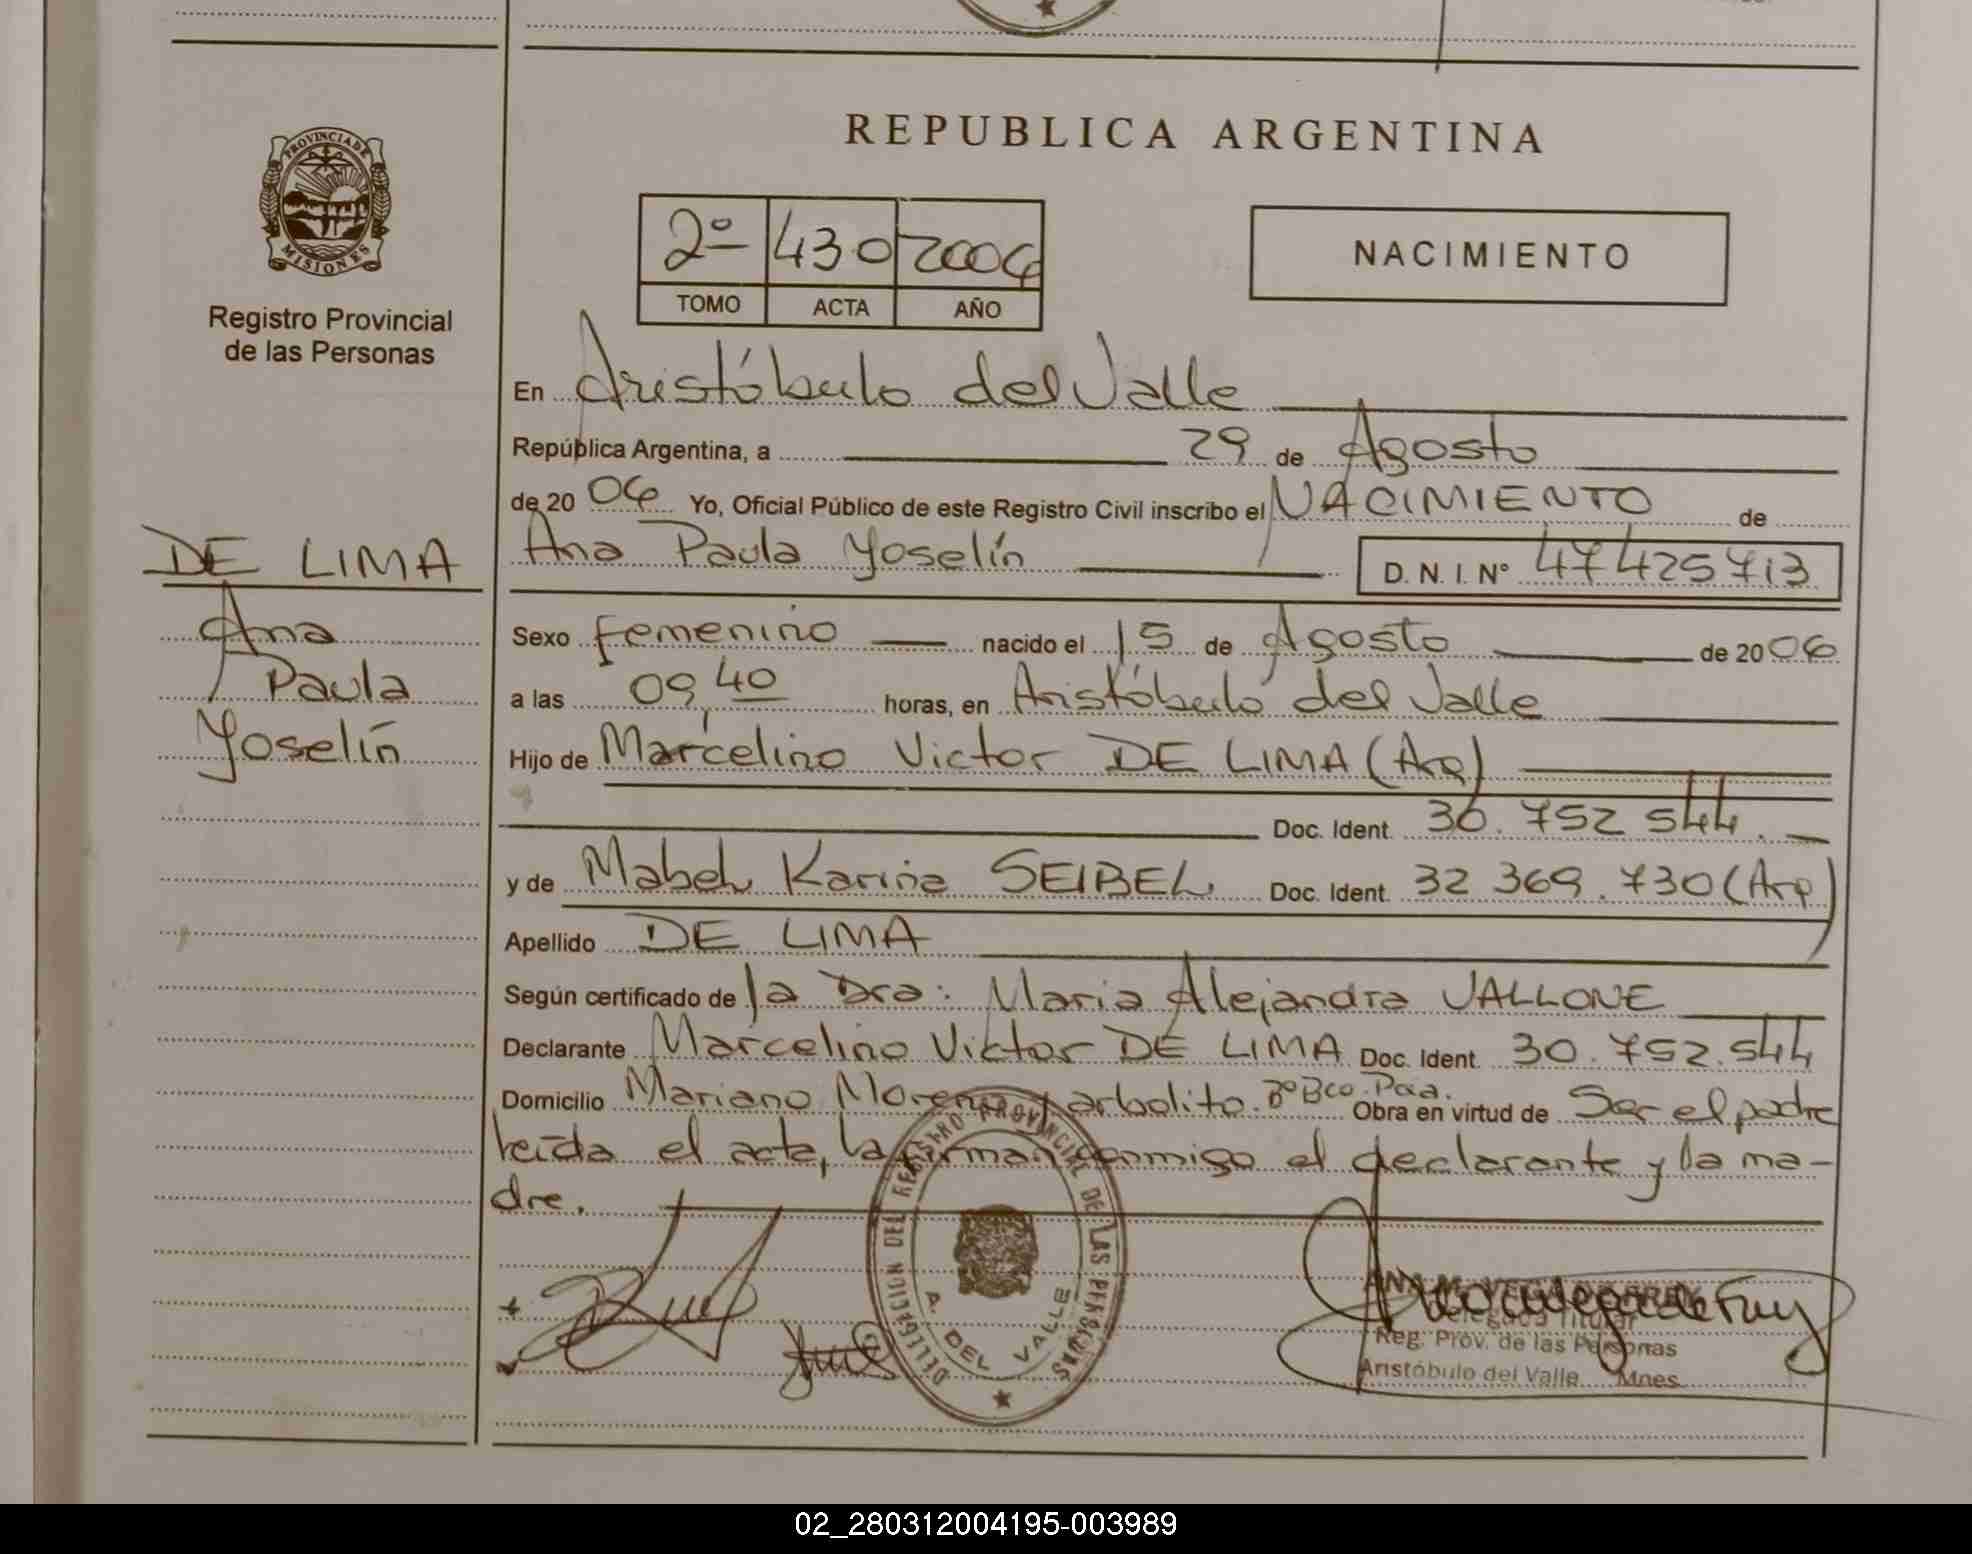 REPUBLICA ARGENTINA
PROVINCIA DE MISIONES
Registro Provincial
de las Personas
2º 430 2006
TOMO ACTA AÑO
NACIMIENTO
En Aristóbulo del Valle
República Argentina, a 29 de Agosto
de 20 06 Yo, Oficial Público de este Registro Civil inscribo el NACIMIENTO de
Ana Paula Yoselín D. N. I. N° 47425713
DE LIMA
Ana
Paula
Yoselín
Sexo femenino nacido el 15 de Agosto de 20 06
a las 09,40 horas, en Aristóbulo del Valle
Hijo de Marcelino Victor DE LIMA (Arg)
Doc. Ident. 30.752 544.
y de Mabel Karina SEIBEL Doc. Ident. 32 369.730 (Arg)
Apellido DE LIMA
Según certificado de la Dra: Maria Alejandra VALLONE
Declarante Marcelino Victor DE LIMA Doc. Ident. 30.752.544
Domicilio Mariano Moreno y arbolito. Bº Bco. Pcia. Obra en virtud de Ser el padre
leída el acta, la firman conmigo el declarante y la ma-
dre.
DELEGACION DEL REGISTRO PROVINCIAL DE LAS PERSONAS
A. DEL VALLE
Delegada Titular
Reg. Prov. de las Personas
Aristóbulo del Valle Mnes
02_280312004195-003989